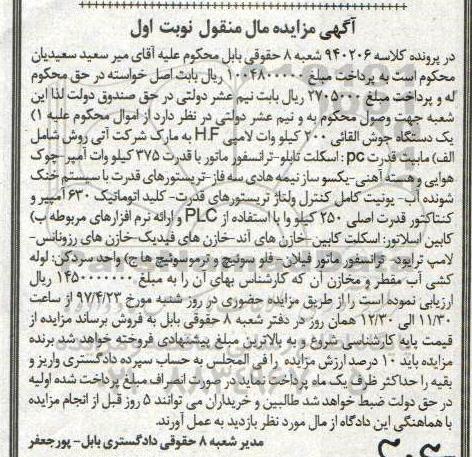 آگهی مزایده مال منقول نوبت اول
در پرونده کلاسه ۹۴۰۲۰۶ شعبه ۸ حقوقی بابل محکوم علیه آقای میر سعید سعیدیان
محکوم است به پرداخت مبلغ ۱۰۰۴۸۰۰۰۰۰ ریال بابت اصل خواسته در حق محکوم
له و پرداخت مبلغ ۲۷۰۵۰۰۰۰ ریال بابت نیم عشر دولتی در حق صندوق دولت لذا این
شعبه جهت وصول محکوم به و نیم عشر دولتی در نظر دارد از اموال محکوم علیه ۱)
یک دستگاه جوش القائی ۲۰۰ کیلو وات لامپی H.F به مارک شرکت آتی روش شامل
الف) مابیت قدرت pc : اسکلت تابلو-ترانسفور ماتور با قدرت ۳۷۵ کیلو وات آمپر-چوک
هوایی و هسته آهنی-یکسو ساز نیمه هادی سه فاز-تریستورهای قدرت با سیستم خنک
شونده آب- یونیت کامل کنترل ولتاژ تریستورهای قدرت- کلید اتوماتیک ۶۳۰ آمپیر و
کنتاکتور قدرت اصلی ۲۵۰ کیلو وا با استفاده از PLC و ارائه نرم افزارهای مربوطه ب)
کابین اسلاتور: اسکلت کابین-خازن های آند-خازن های فیدبک-خازن های رزونانس-
لامپ تراپود- ترانسفور ماتور فیلان- فلو سوئیچ و ترموسوئیچ ها ج) واحد سردکن: لوله
کشی آب مقطر و مخازن آن که کارشناس بهای آن را به مبلغ ۱۴۵۰۰۰۰۰۰۰ ریال
ارزیابی نموده است را از طریق مزایده حضوری در روز شنبه مورخ ۹۷/۴/۲۳ از ساعت
۱۱/۳۰ الی ۱۲/۳۰ همان روز در دفتر شعبه ۸ حقوقی بابل به فروش برساند مزایده از
قیمت پایه کارشناسی شروع و به بالاترین مبلغ پیشنهادی فروخته خواهد شد برنده
مزایده باید ۱۰ درصد ارزش مزایده را فی المجلس به حساب سپرده دادگستری واریز و
بقیه را حداکثر ظرف یک ماه پرداخت نماید در صورت انصراف مبلغ پرداخت شده اولیه
در حق دولت ضبط خواهد شد طالبین و خریداران می توانند ۵ روز قبل از انجام مزایده
با هماهنگی این دادگاه از مال مورد نظر بازدید به عمل آورند.
مدیر شعبه ۸ حقوقی دادگستری بابل- پورجعفر